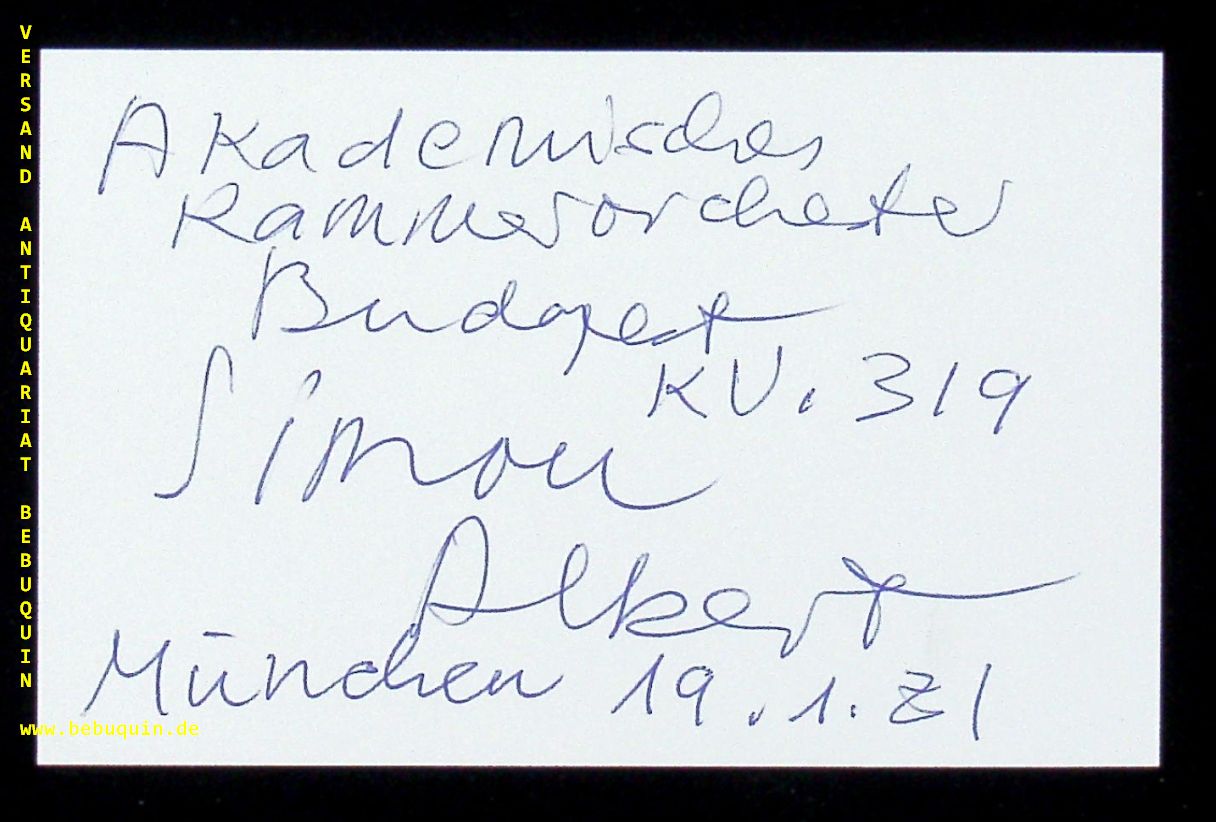 VERSAND ANTIQUARIAT BEBUQUIN
Akademisches
Kammerorchester
Budapest
KV. 319
Simon
Albert
München 19.1.81
www.bebuquin.de